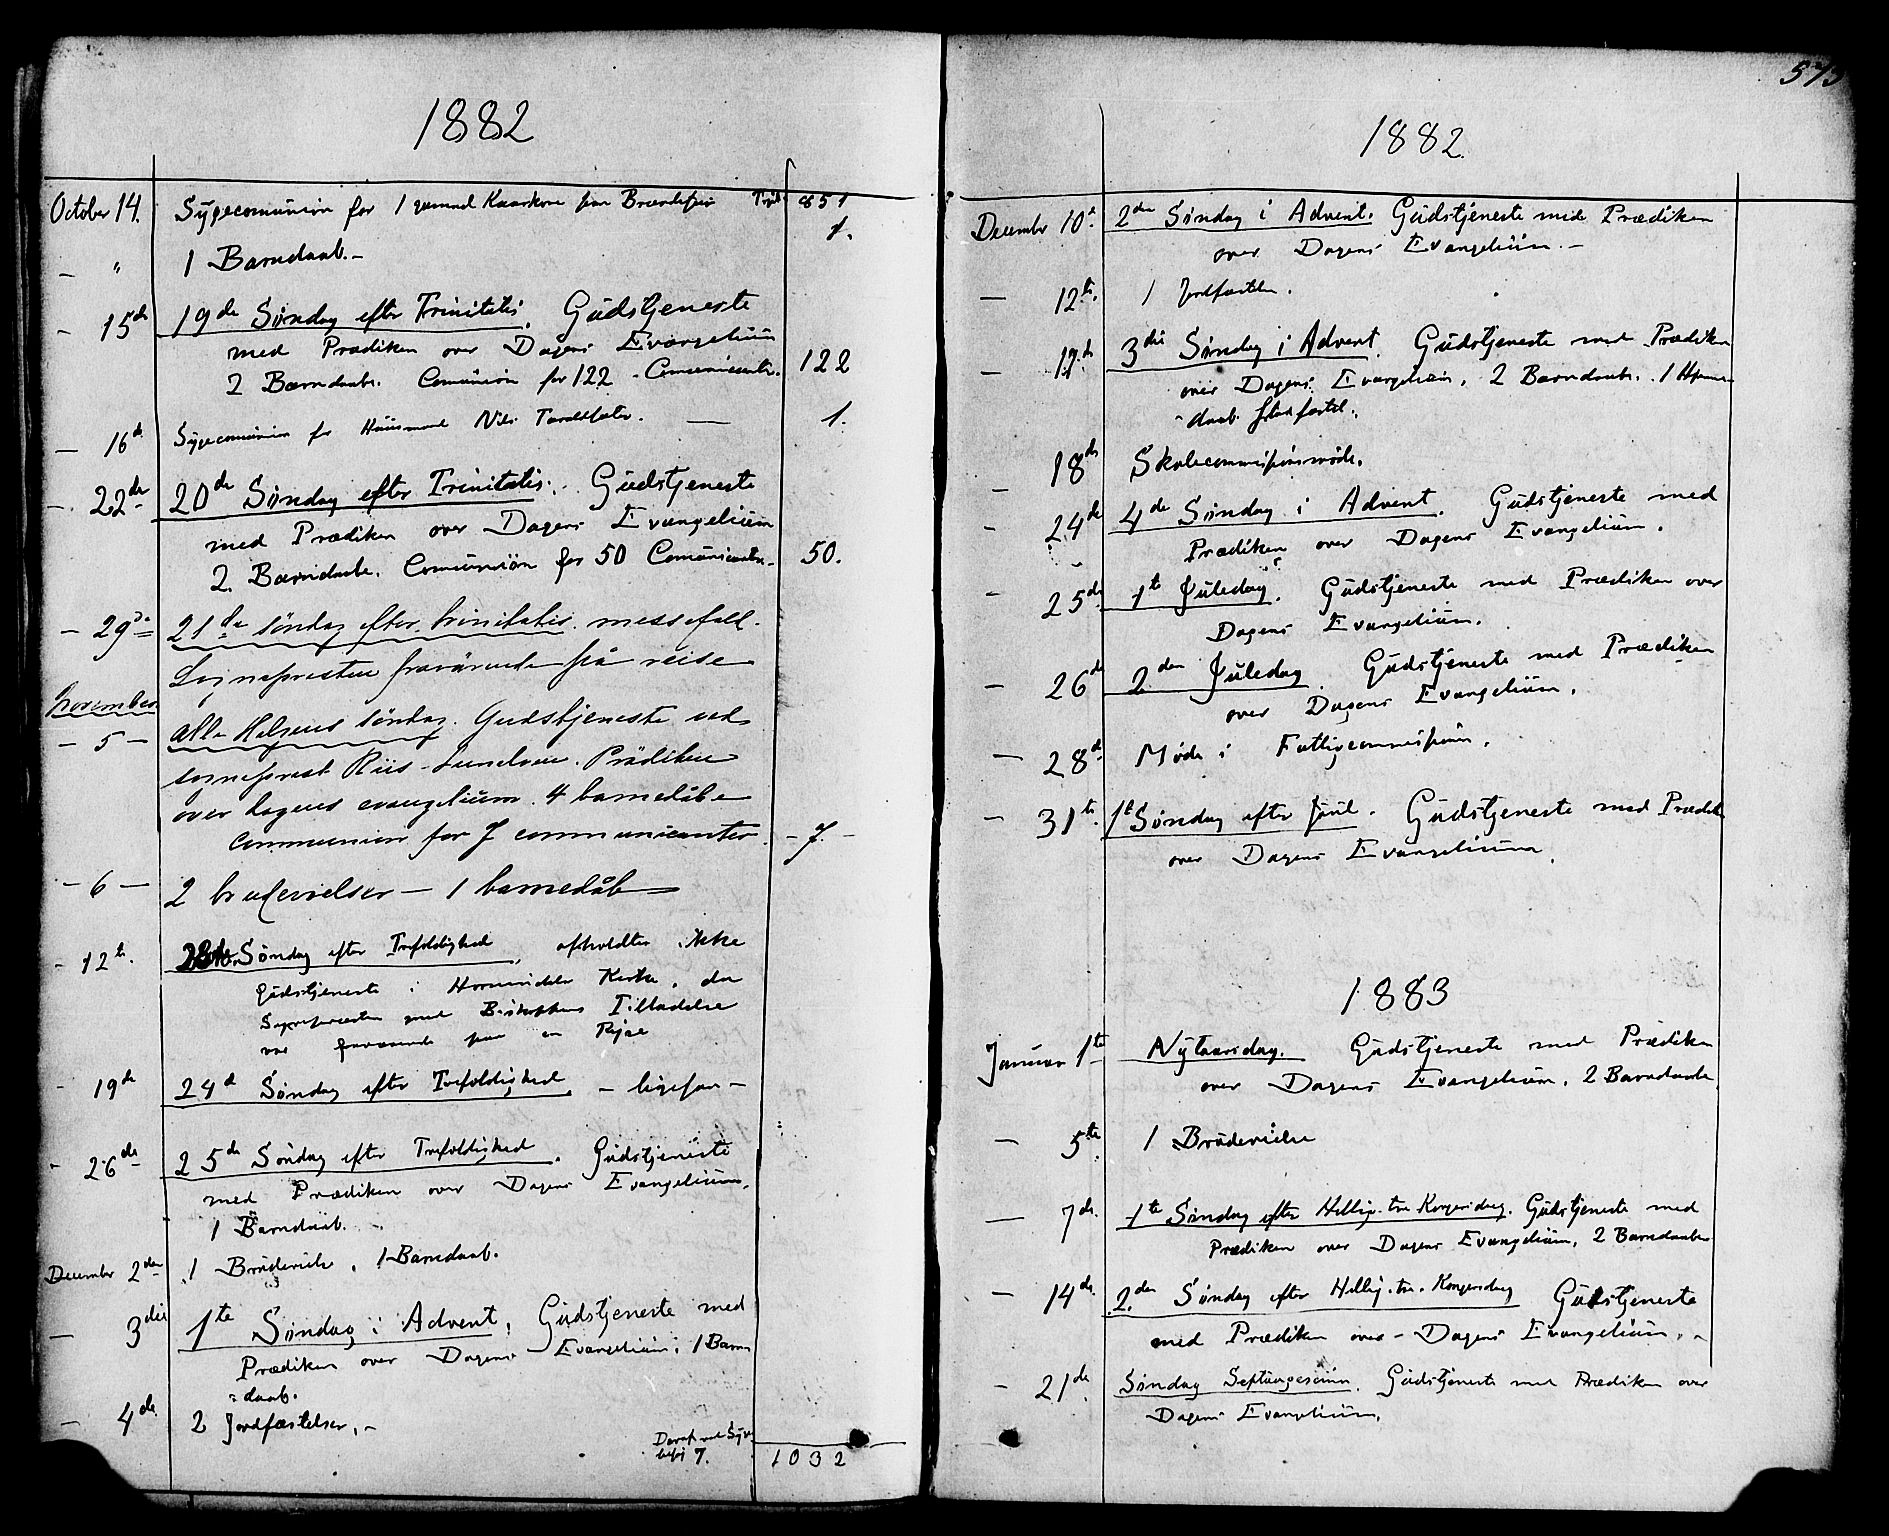 1882
October 14. Sygecomunion for 1 gammel Kaarkone paa 851
1.
— " 1 Barndaab. —
— 15de 19de Søndag efter Trinitatis. Gudstjeneste
med Prædiken over Dagens Evangelium
2 Barndaabe. Comunion for 122 Comunicanter. 122
— 16de Sygecomunion for Huusmand Nils — 1.
— 22de 20de Søndag efter Trinitatis. Gudstjeneste
med Prædiken over Dagens Evangelium
2 Barndaabe. Comunion for 50 Comunicanter. 50.
— 29de 21de søndag efter trinitatis. messefald.
Sognepresten fraværende på reise
November
— 5 — Alle Helgens søndag. Gudstjeneste ved
sogneprest Riis-Lundvee. Prädiken
over dagens evangelium. 4 barnedåbe
communion for 7 communicanter. — 7. —
— 6 — 2 brudevielser — 1 barnedåb —
— 12te Søndag efter Trefoldighed, afholdtes ikke
Gudstjeneste i Hornindals Kirke, da
Sognepræsten med Biskoppens Tilladelse
var fraværende paa en Rejse
— 19de 24d Søndag efter Trefoldighed — ligesaa —
— 26de 25de Søndag efter Trefoldighed. Gudstjeneste
med Prædiken over Dagens Evangelium.
1 Barndaab.
December 2den 1 Brudevielse, 1 Barndaab.
— 3die 1te Søndag i Advent. Gudstjeneste med
Prædiken over Dagens Evangelium. 1 Barn
=daab.
— 4de 2 Jordfæstelser. —
Deraf ved Syge
besøg 7. 1032
573
1882.
December 10de 2den Søndag i Advent. Gudstjeneste med Prædiken
over Dagens Evangelium. —
— 12te. 1 Jordfæstelse.
— 17de 3die Søndag i Advent. Gudstjeneste med Prædiken
over Dagens Evangelium. 2 Barndaabe. 1 Hjemme-
daab stadfæstet.
— 18de Skolecommissionsmøde.
— 24de 4de Søndag i Advent. Gudstjeneste med
Prædiken over Dagens Evangelium.
— 25de 1te Juledag. Gudstjeneste med Prædiken over
Dagens Evangelium.
— 26de 2den Juledag. Gudstjeneste med Prædiken
over Dagens Evangelium.
— 28de Møde i Fattigcommission.
— 31te 1te Søndag efter Juul. Gudstjeneste med Prædiken
over Dagens Evangelium.
1883
Januar 1te Nytaarsdag. Gudstjeneste med Prædiken
over Dagens Evangelium. 2 Barndaabe
— 5te 1 Brudevielse
— 7de. 1te Søndag efter Hellig-tre-Kongersdag. Gudstjeneste med
Prædiken over Dagens Evangelium. 2 Barndaabe
— 14de. 2den Søndag efter Hellig-tre-Kongersdag Gudstjeneste
med Prædiken over Dagens Evangelium. —
— 21de Søndag Septuagesima. Gudstjeneste med Prædiken over
Dagens Evangelium.